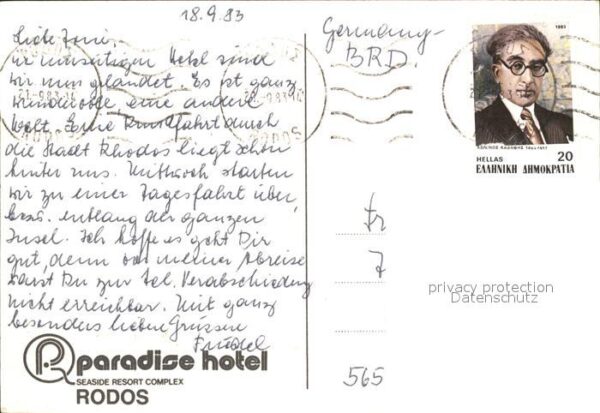 18.9.83
Liebe
im einseitigen Hotel sind
wir nun gelandet. Es ist ganz
wundervoll eine andere
Welt. Eine Rundfahrt durch
die Stadt Rhodos liegt schon
hinter uns. Mittwoch starten
wir zu einer Tagesfahrt über,
bzw. entlang der ganzen
Insel. Ich hoffe es geht Dir
gut, denn vor meiner Abreise
warst Du zur tel. Verabschiedung
nicht erreichbar. Mit ganz
besonders lieben Grüssen
paradise hotel
SEASIDE RESORT COMPLEX
RODOS
Germany-
BRD.
1983
HELLAS 20
ΕΛΛΗΝΙΚΗ ΔΗΜΟΚΡΑΤΙΑ
Fr
7
565
privacy protection
Datenschutz